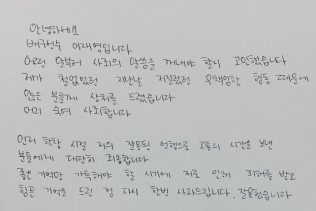 안녕하세요
배구선수 이재영입니다
어떤 말부터 사죄의 말씀을 꺼내야 할지 고민했습니다
제가 철없었던 지난날 저질렀던 무책임한 행동 때문에
많은 분들께 상처를 드렸습니다
머리 숙여 사죄합니다
먼저 학창 시절 저의 잘못된 언행으로 고통의 시간을 보낸
분들에게 대단히 죄송합니다
좋은 기억만 가득해야 할 시기에 저로 인해 피해를 받고
힘든 기억을 드린 점 다시 한번 사과드립니다, 잘못했습니다